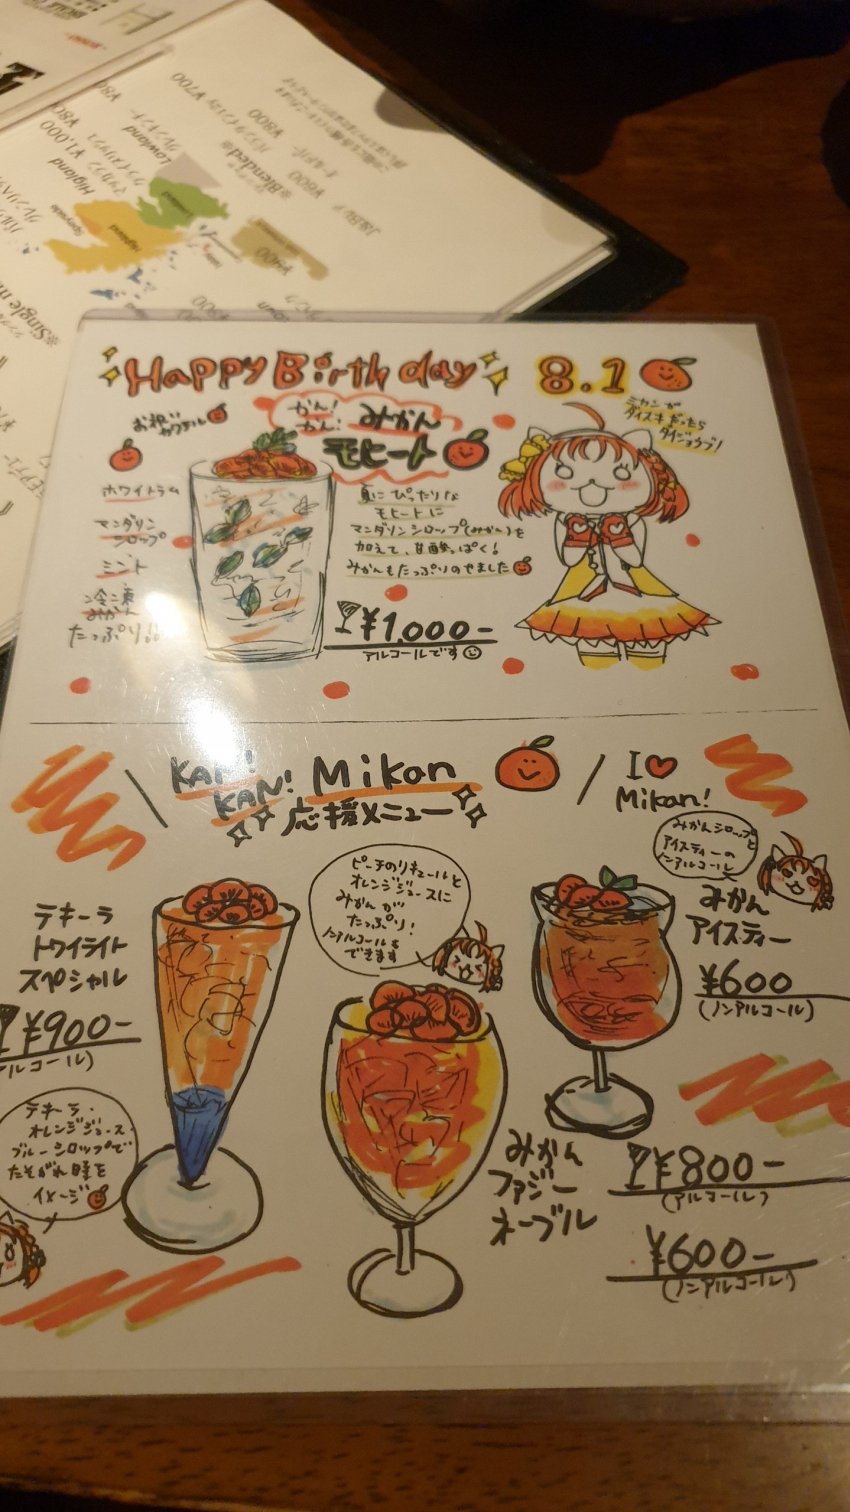 Happy Birthday 8.1
お祝い
カクテル
かん!
かん!
みかん
モヒート
ミカンが
ダイスキだったら
ダイジョウブ!
ホワイトラム
マンダリン
シロップ
ミント
冷凍
みかん
たっぷり!!
夏にぴったりな
モヒートに
マンダリンシロップ(みかん)を
加えて、甘酸っぱく!
みかんもたっぷりのせました
¥1,000-
アルコールです
KAN!
KAN! Mikan
応援メニュー
I♥
Mikan!
みかんシロップと
アイスティーの
ノンアルコール
みかん
アイスティー
¥600
(ノンアルコール)
ピーチのリキュールと
オレンジジュースに
みかんが
たっぷり!
ノンアルコールも
できます
テキーラ
トワイライト
スペシャル
¥900-
アルコール)
テキーラ・
オレンジジュース
ブルーシロップで
たそがれ時を
イメージ
みかん
ファジー
ネーブル
¥800-
(アルコール)
¥600-
(ノンアルコール)
¥700
¥800
※Blended※
¥600
Lowland
Higland
¥1,000
Speyside
Highland
¥900